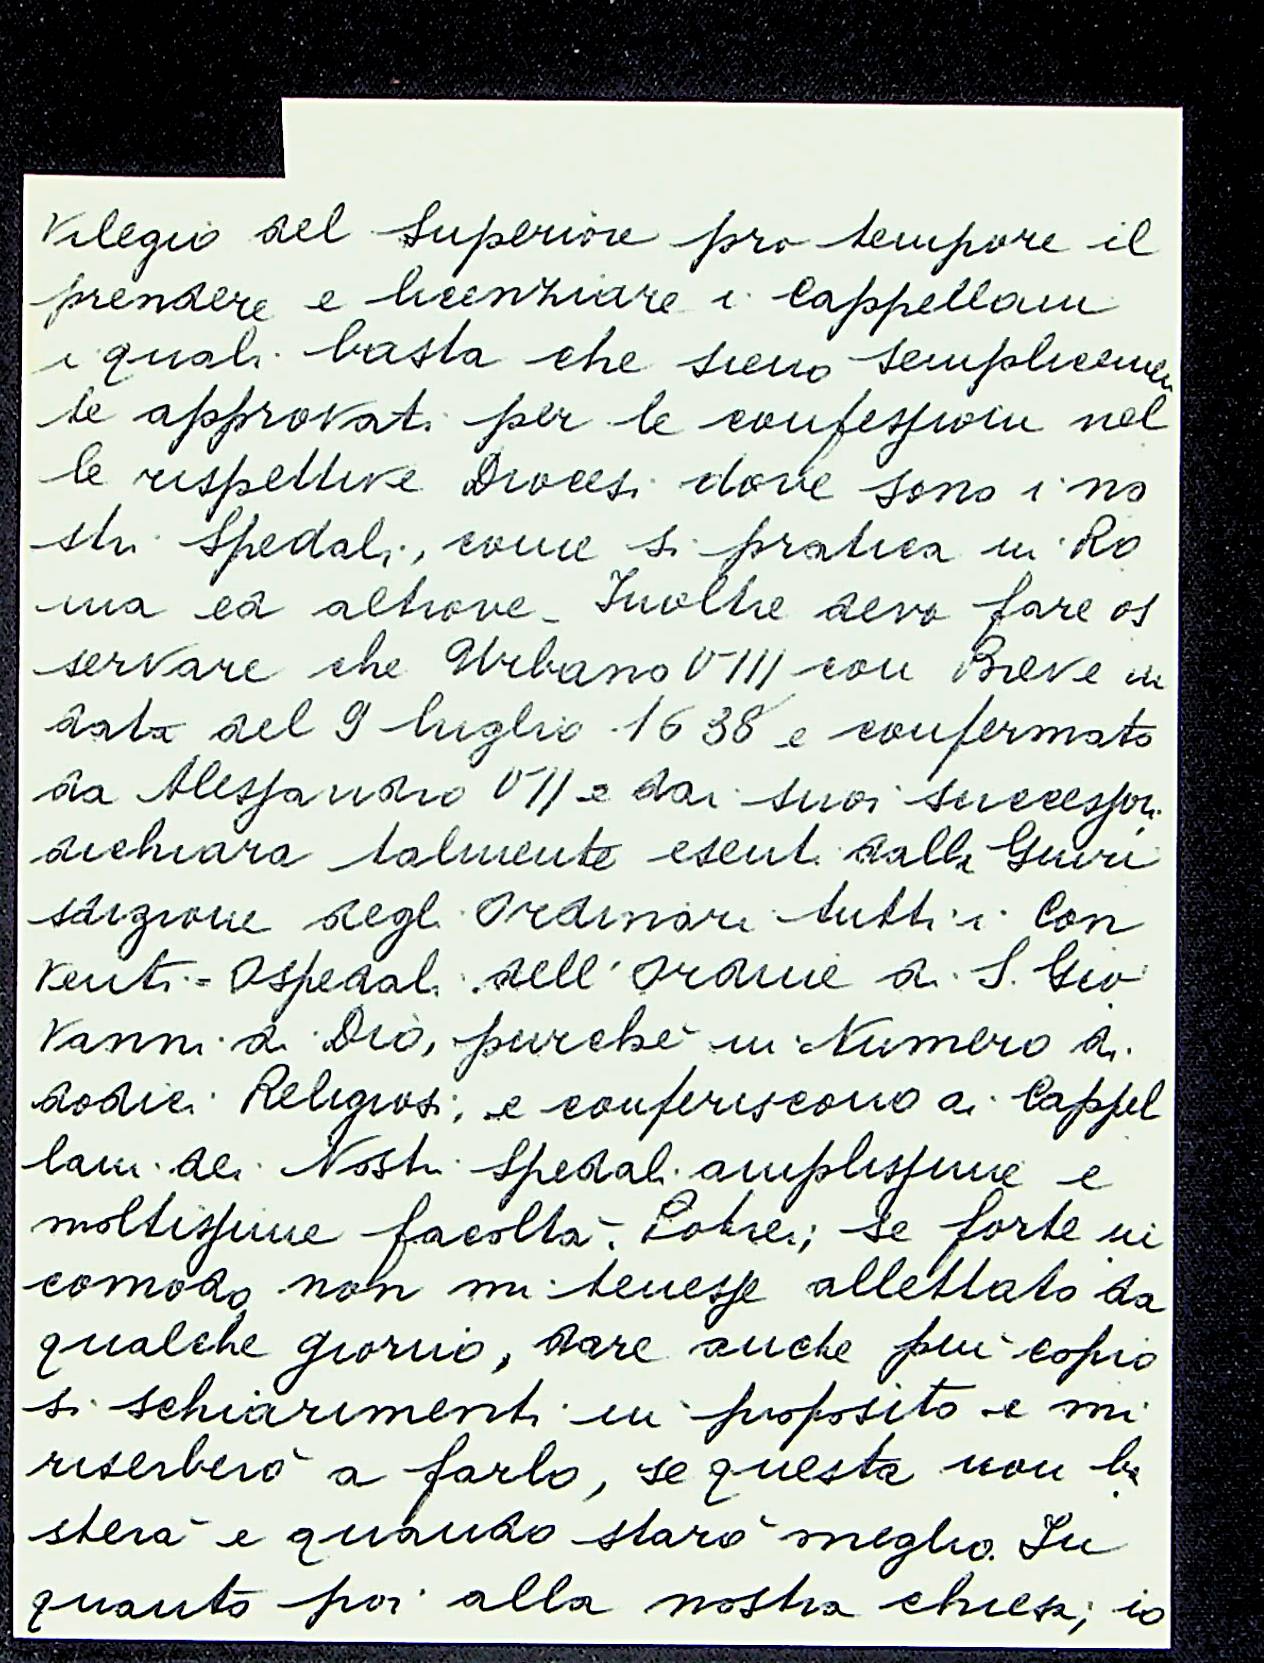 vilegio del Superiore pro tempore il
prendere e licenziare i Cappellani
i quali basta che sieno semplicemen
te approvati per le confessioni nel
le rispettive Diocesi dove sono i no
stri Spedali, come si pratica in Ro
ma ed altrove - Inoltre devo fare os
servare che Urbano VIII con Breve in
data del 9 luglio 1638 e confermato
da Alessandro VII e dai suoi successori
dichiara talmente esenti dalla Giuri
sdizione degli Ordinari tutti i Con
venti - Ospedali dell'Ordine di S. Gio
vanni di Dio, purchè in Numero di
dodici Religiosi; e conferiscono ai Cappel
lani dei Nostri Spedali amplissime e
moltissime facoltà. Potrei; se forte in
comodo non mi tenesse allettato da
qualche giorno, dare anche più copio
si schiarimenti in proposito e mi
riserberò a farlo, se questa non ba
sterà e quando starò meglio. In
quanto poi alla nostra chiesa; io